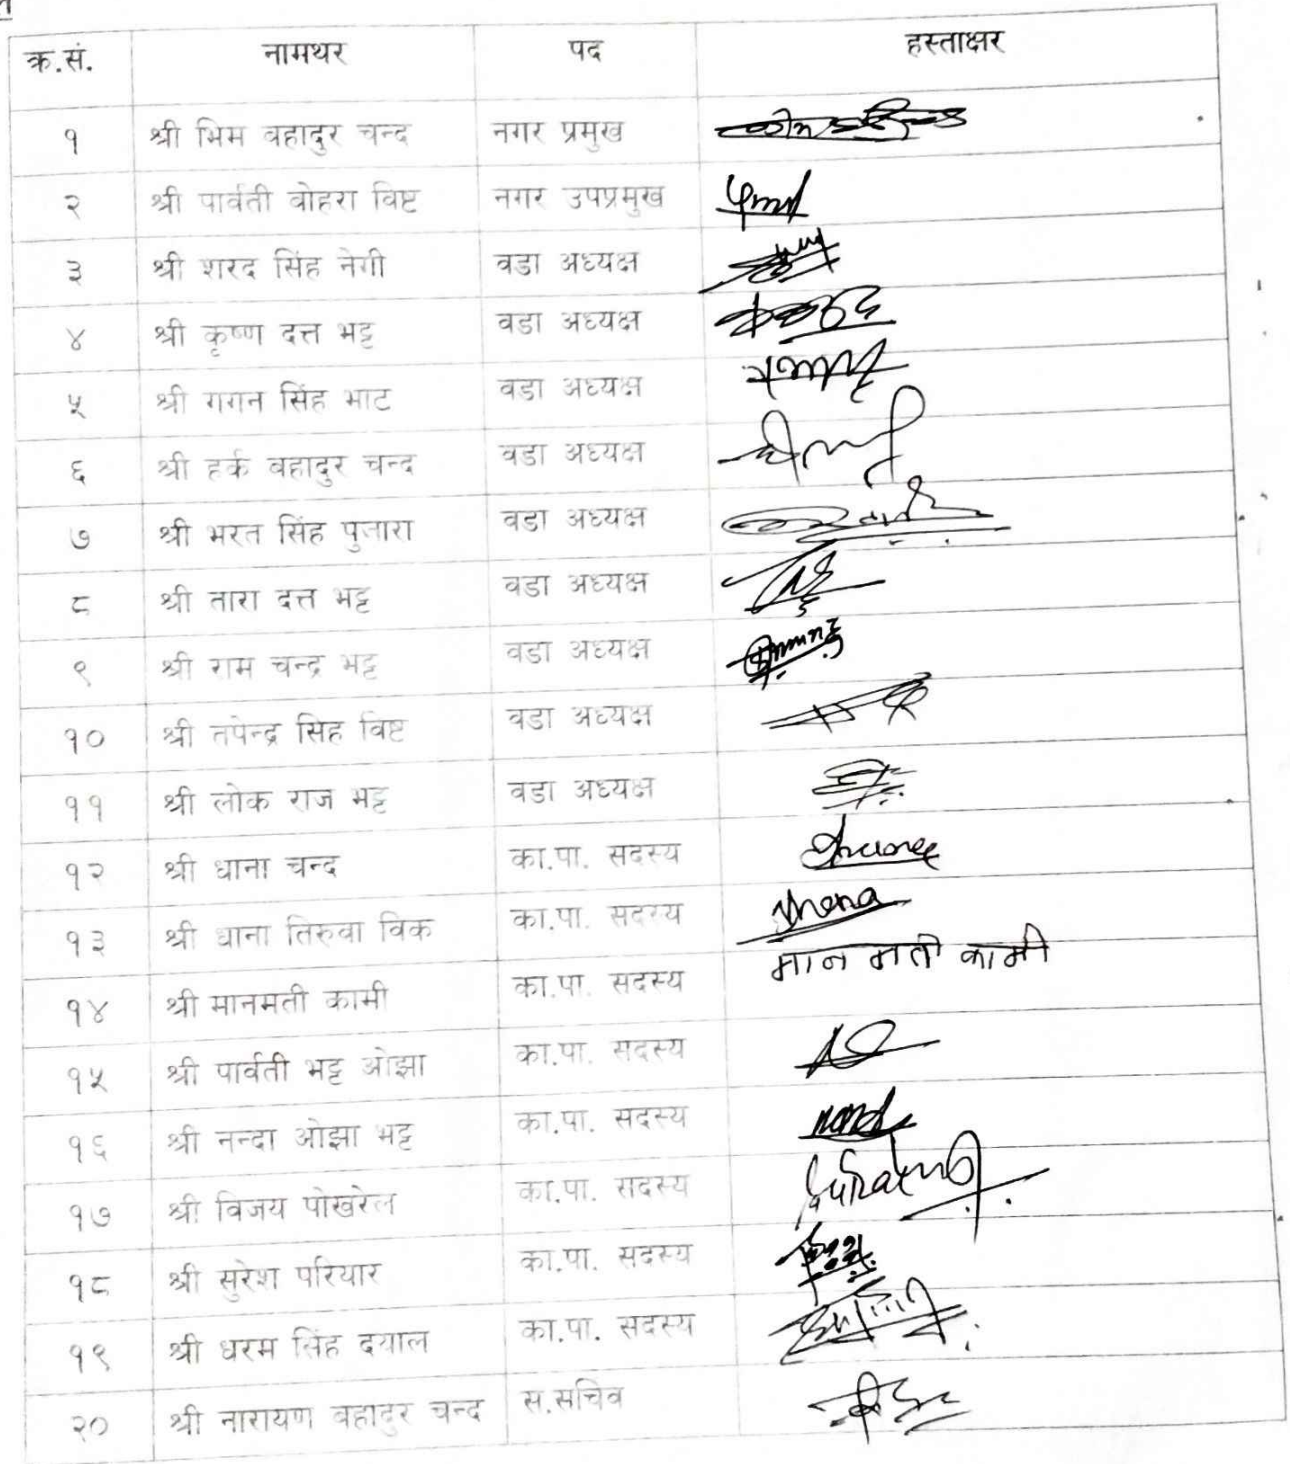 क्र.सं. नामथर पद हस्ताक्षर
१ श्री भिम वहादुर चन्द नगर प्रमुख
२ श्री पार्वती वोहरा विष्ट नगर उपप्रमुख
३ श्री शरद सिंह नेगी वडा अध्यक्ष
४ श्री कृष्ण दत्त भट्ट वडा अध्यक्ष
५ श्री गगन सिंह भाट वडा अध्यक्ष
६ श्री हर्क वहादुर चन्द वडा अध्यक्ष
७ श्री भरत सिंह पुजारा वडा अध्यक्ष
८ श्री तारा दत्त भट्ट वडा अध्यक्ष
९ श्री राम चन्द्र भट्ट वडा अध्यक्ष
१० श्री तपेन्द्र सिह विष्ट वडा अध्यक्ष
११ श्री लोक राज भट्ट वडा अध्यक्ष
१२ श्री धाना चन्द का.पा. सदस्य
१३ श्री धाना तिरुवा विक का.पा. सदस्य
१४ श्री मानमती कामी का.पा. सदस्य मान मती कामी
१५ श्री पार्वती भट्ट ओझा का.पा. सदस्य
१६ श्री नन्दा ओझा भट्ट का.पा. सदस्य
१७ श्री विजय पोखरेल का.पा. सदस्य
१८ श्री सुरेश परियार का.पा. सदस्य
१९ श्री धरम सिंह दयाल का.पा. सदस्य
२० श्री नारायण वहादुर चन्द स.सचिव